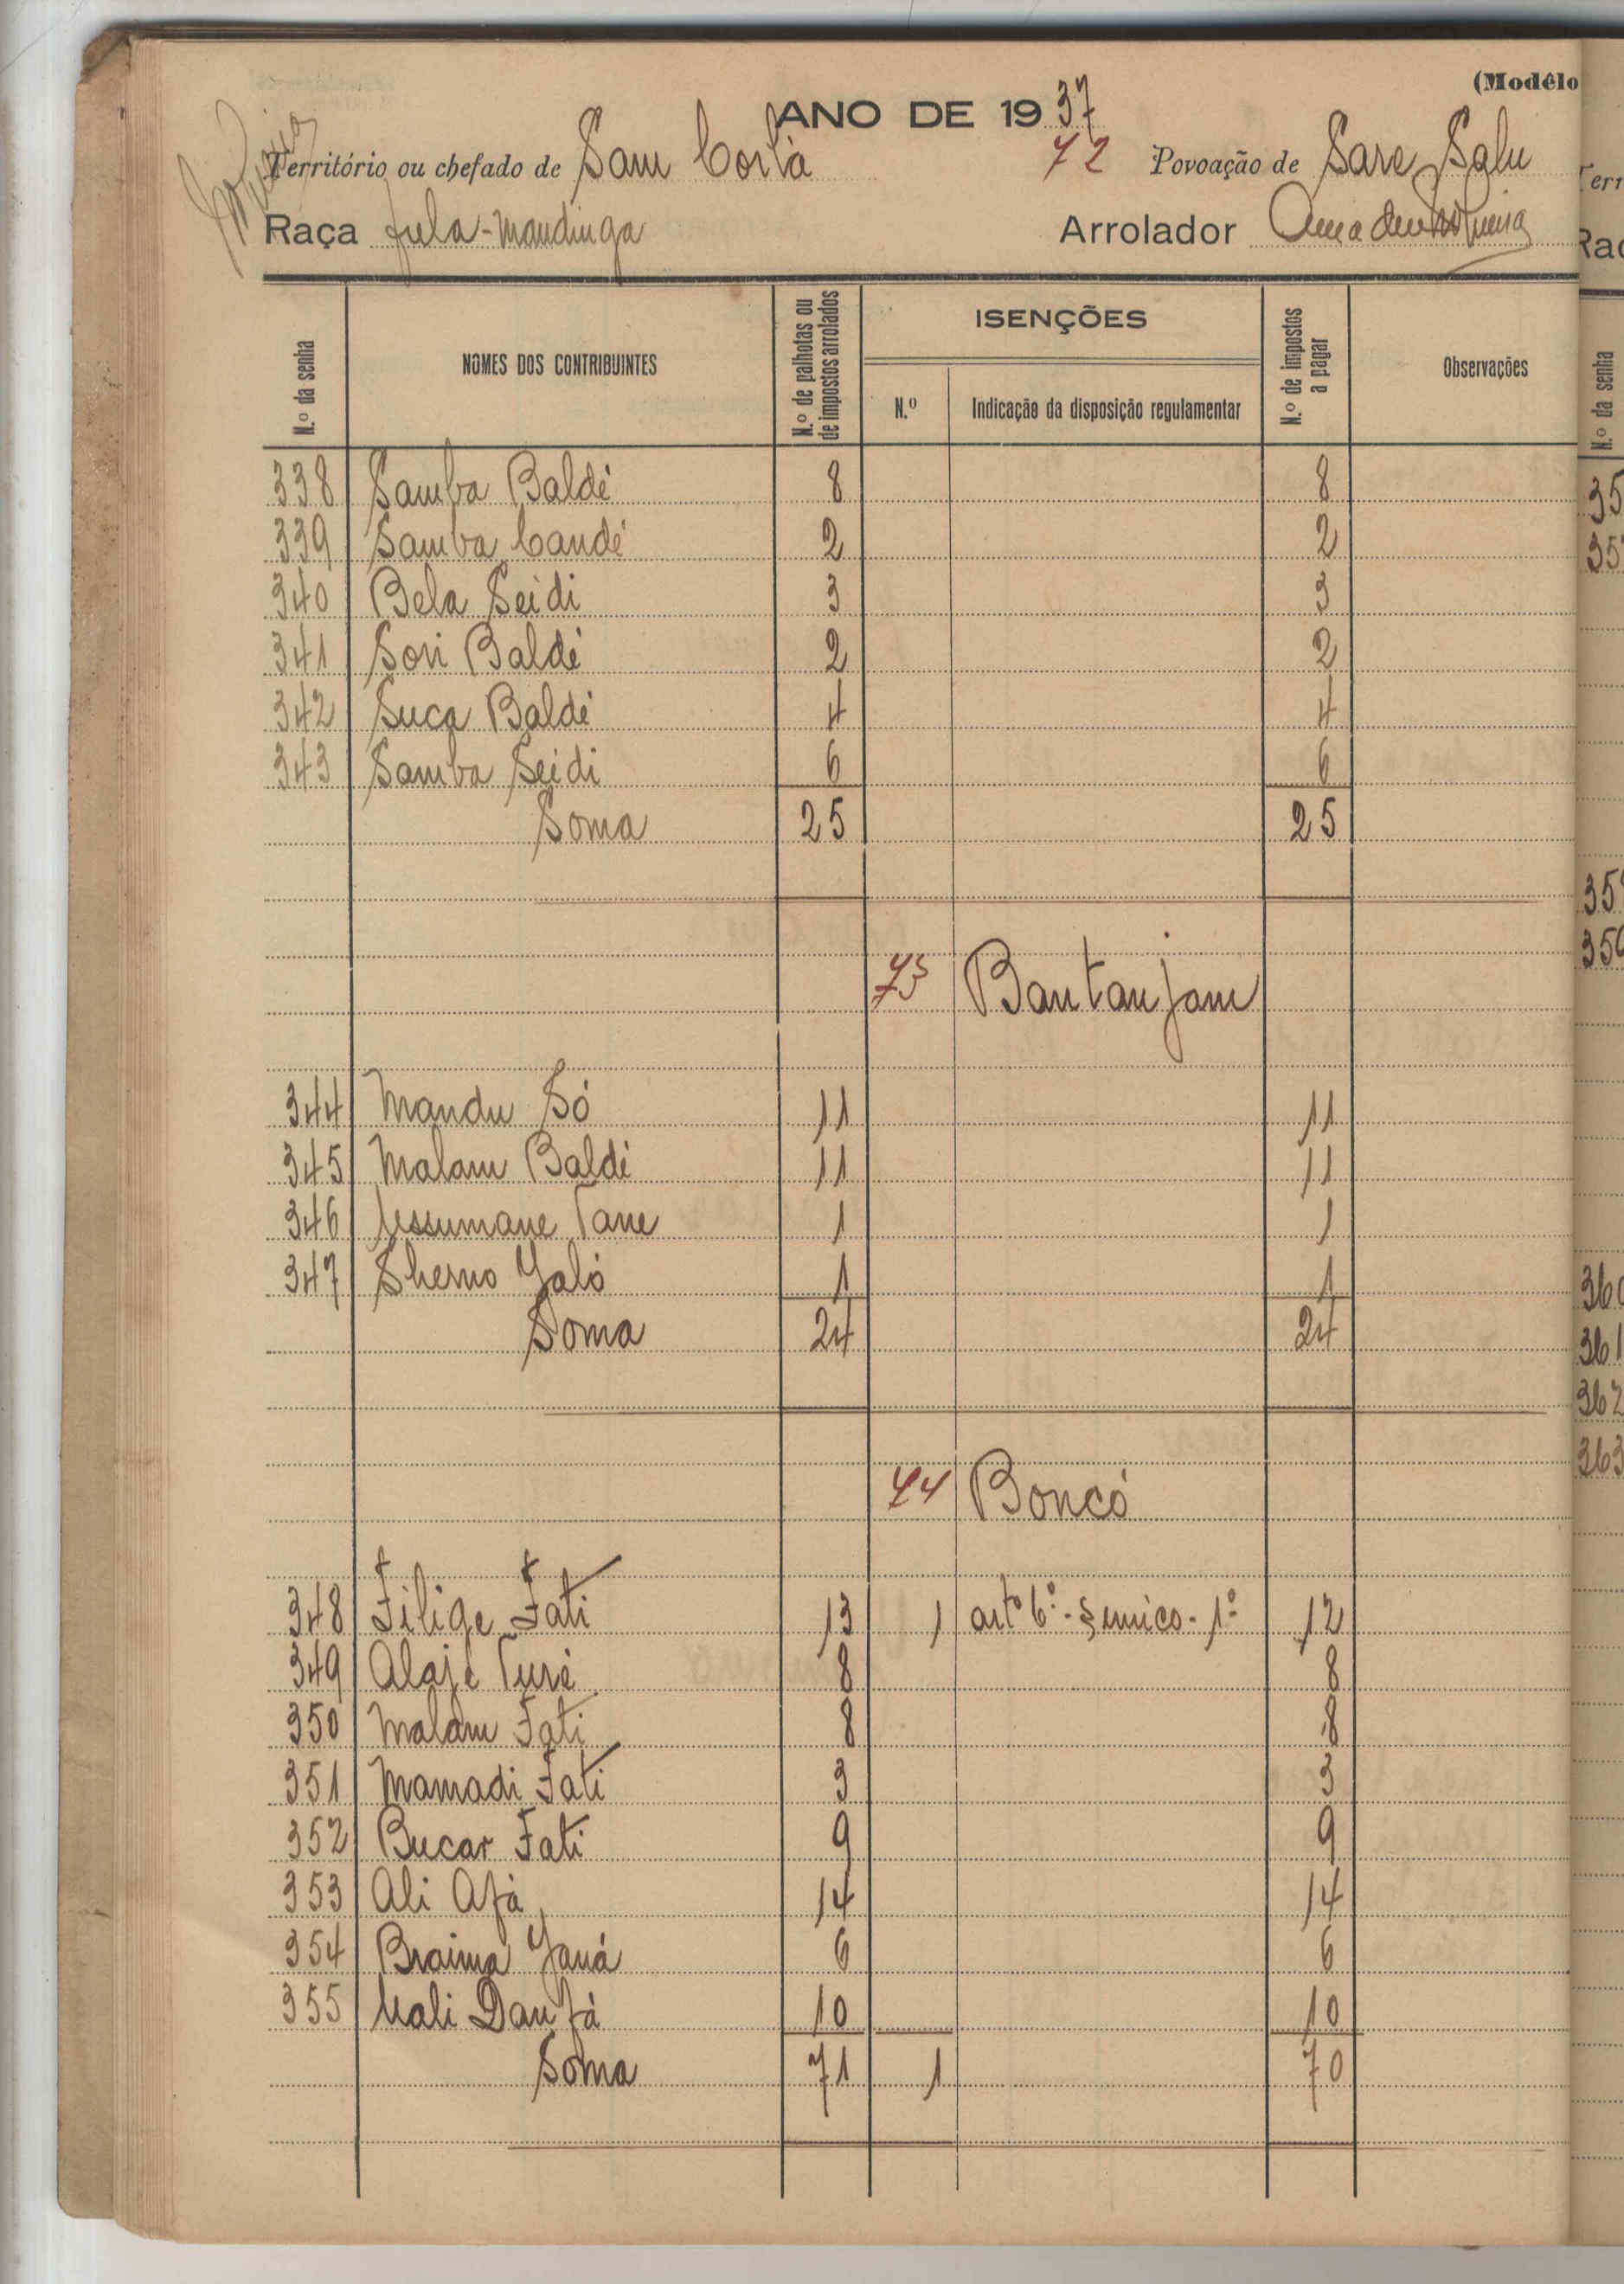 (Modêlo
ANO DE 1937
Território ou chefado de Sam Corlá 42 Povoação de Sare Salu
Raça fula-mandinga Arrolador
N.º da senha NOMES DOS CONTRIBUINTES N.º de palhotas ou de impostos arrolados ISENÇÕES N.º Indicação da disposição regulamentar N.º de impostos a pagar Observações
338 Samba Baldé 8 8
339 Samba Candé 2 2
340 Bela Seidi 3 3
341 Sori Baldé 2 2
342 Suca Baldé 4 4
343 Samba Seidi 6 6
Soma 25 25
43 Bantanjam
344 Mandu Só 11 11
345 Malam Baldé 11 11
346 Ussumane Tane 1 1
347 Sherno Jaló 1 1
Soma 24 24
44 Boncó
348 Filige Fati 13 1 artº 6º - § unico - 1º 12
349 Alaje Turé 8 8
350 Malam Fati 8 8
351 Mamadi Fati 3 3
352 Bucar Fati 9 9
353 Ali Afá 14 14
354 Braima Janá 6 6
355 Mali Danfá 10 10
Soma 71 1 70
Terr
Raç
N.º da senha
35
35
35
360
361
362
363